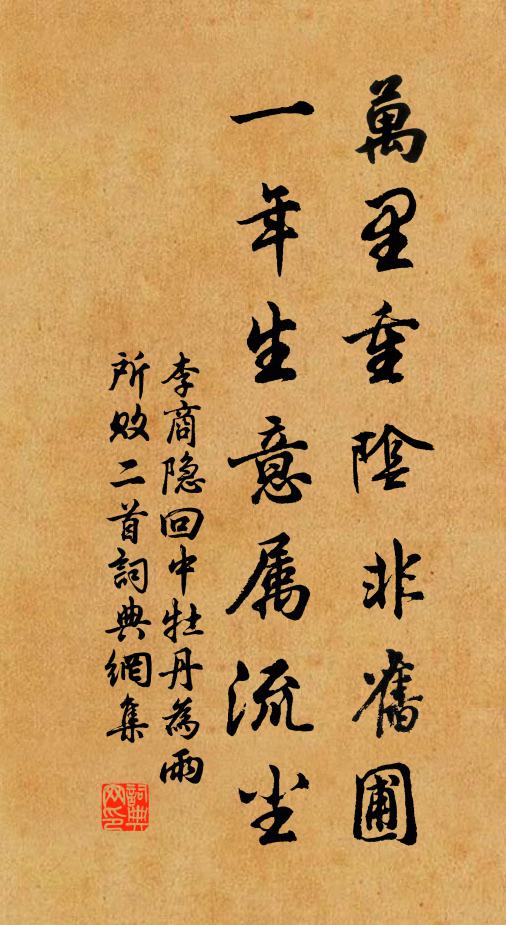 萬里重陰非舊圃
一年生意属流尘
李商隐回中牡丹為雨
所败二首詞典網集
詞典网印